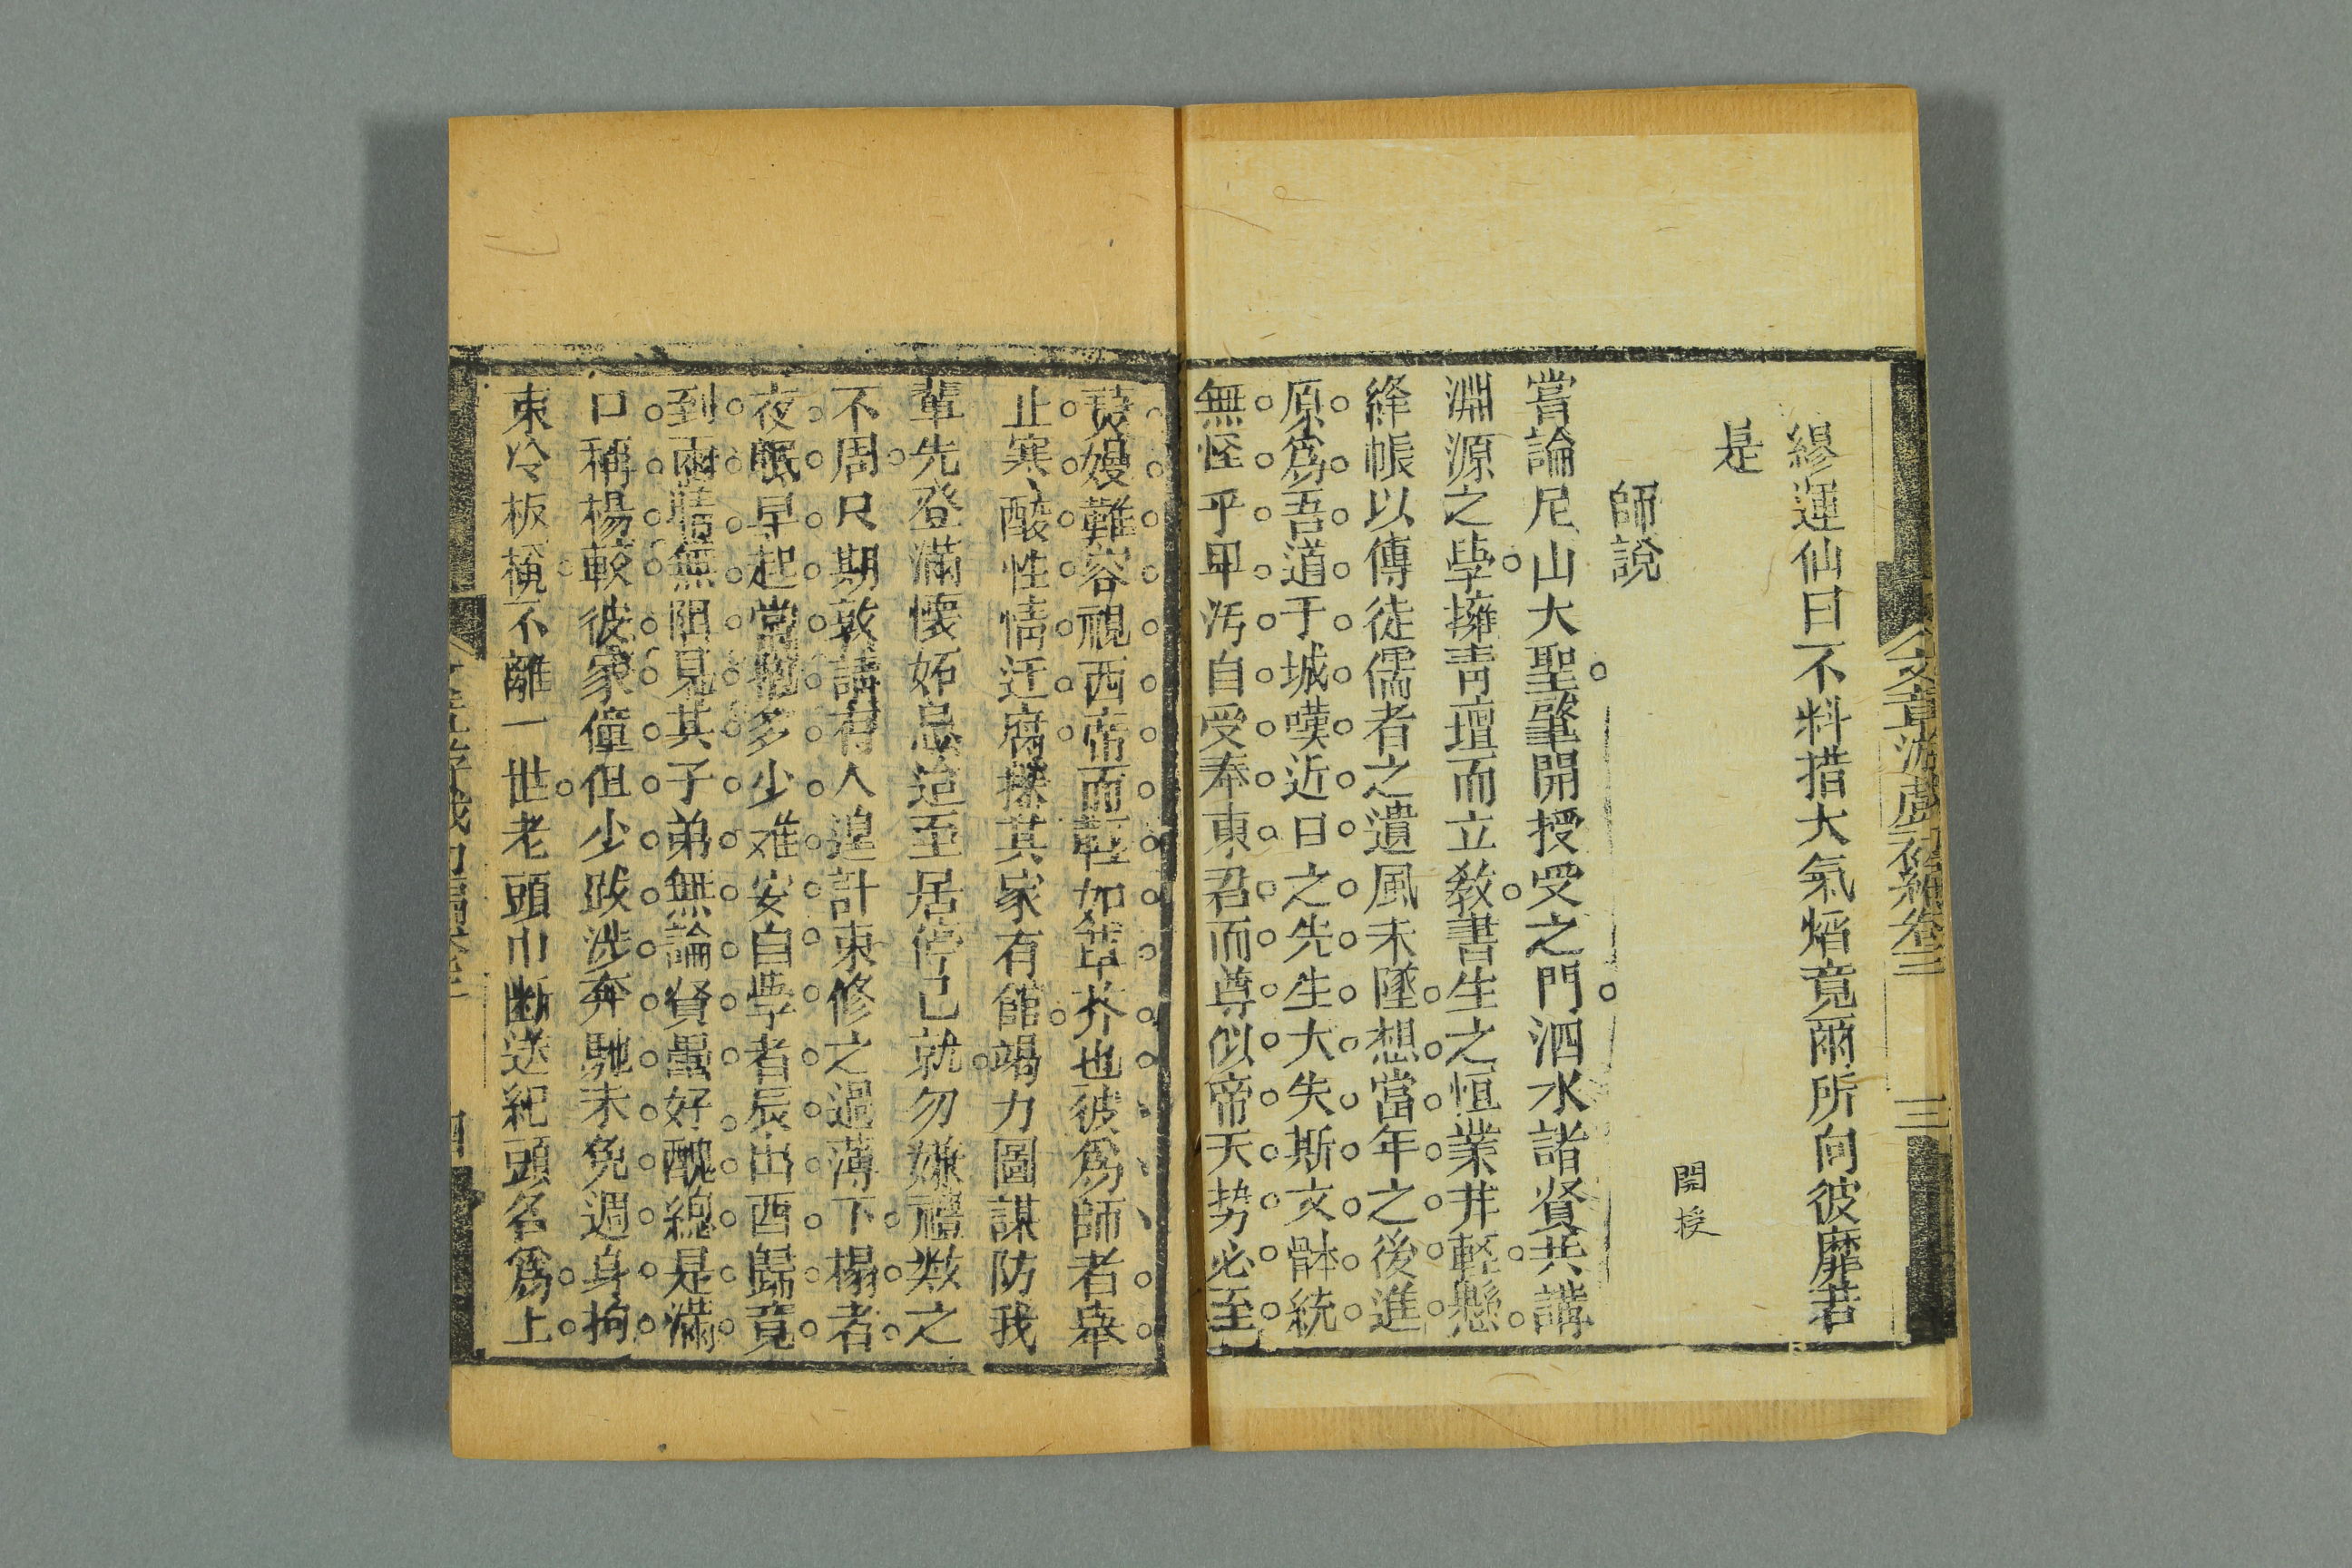 文章游戲初編卷三 三
繆蓮仙曰不料措大氣焰竟爾所向彼靡若
是
師說
開授
嘗論尼山大聖肇開授受之門泗水諸賢共講
淵源之學擁靑壇而立敎書生之恒業井輕懸
絳帳以傳徒儒者之遺風未墜想當年之後進
原爲吾道于城嘆近日之先生大失斯文體統
無怪乎甲汚自受奉東君而尊似帝天勢必至
嫚難容視西席而輕如草芥也彼爲師者舉
止寒酸性情迂腐探其家有館竭力圖謀防我
輩先登滿懷妬忌迨至居停已就勿嫌禮数之
不周尺期敦請有人遑計束修之過薄下榻者
夜眠早起當到多少难安自學者辰出酉歸竟
到雨晴無阻見其子弟無論賢愚好醜總是滿
口稱楊較彼家僮但少跋涉奔馳未免週身拘
束冷板櫈不離一世老頭巾断送紀頭名爲上
四